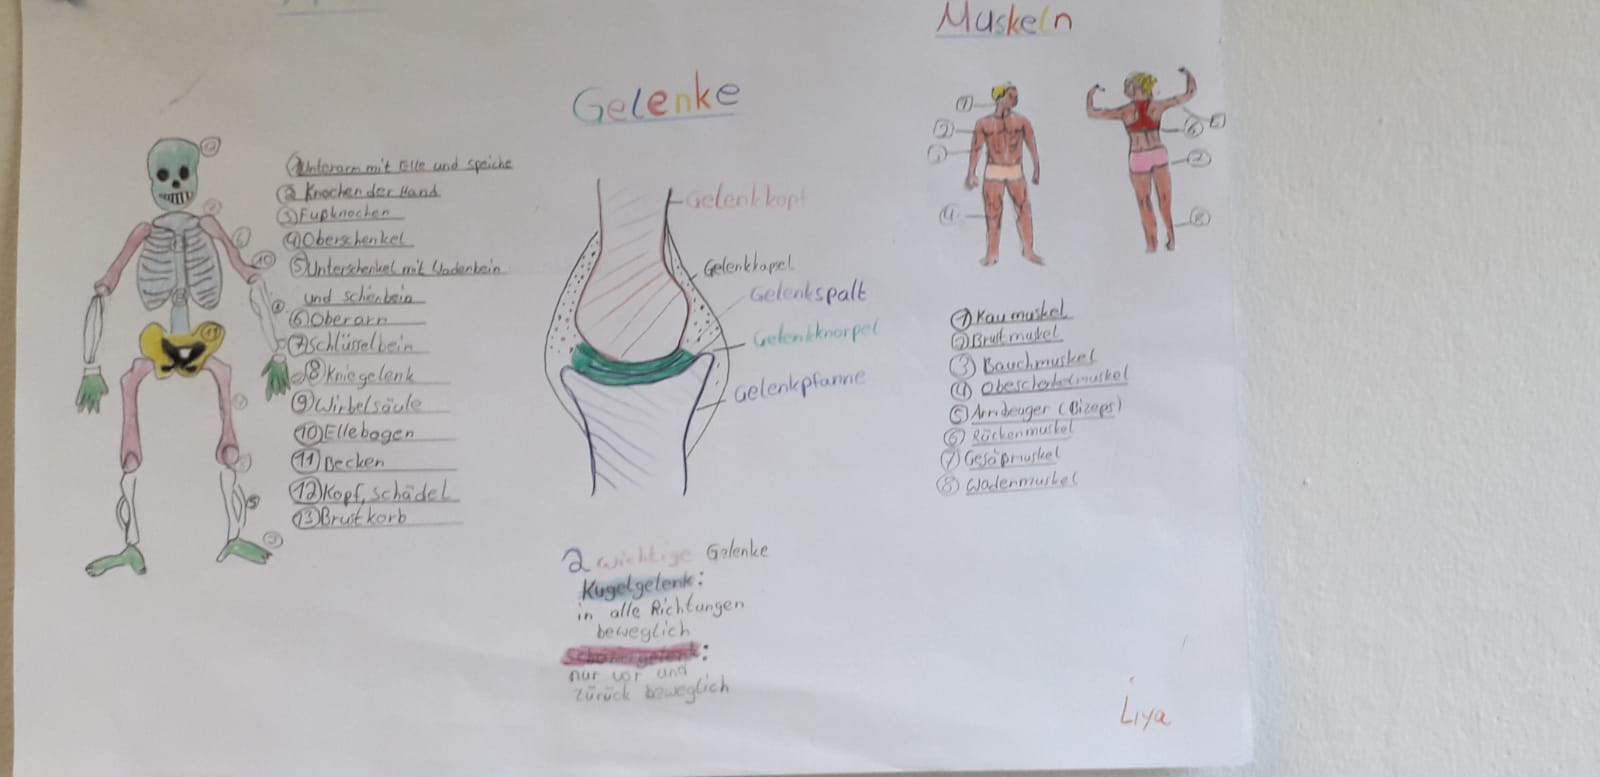 ①Unterarm mit Elle und speiche
② Knochen der Hand
③Fußknochen
④Oberschenkel
⑤Unterschenkel mit Wadenbein
und schienbein
⑥Oberarm
⑦Schlüsselbein
⑧Kniegelenk
⑨Wirbelsäule
⑩Ellebogen
⑪Becken
⑫Kopf, schädel
⑬Brustkorb
Gelenke
Gelenkkopf
Gelenkkapel
Gelenkspalt
Gelenkknorpel
Gelenkpfanne
2 wichtige Gelenke
Kugelgelenk:
in alle Richtungen
beweglich
Scharniergelenk:
nur vor und
zürück beweglich
Muskeln
① Kaumuskel
② Brustmuskel
③ Bauchmuskel
④ Obeschenkelmuskel
⑤ Armbeuger (Bizeps)
⑥ Rückenmuskel
⑦ Gesäßmuskel
⑧ Wadenmuskel
Liya